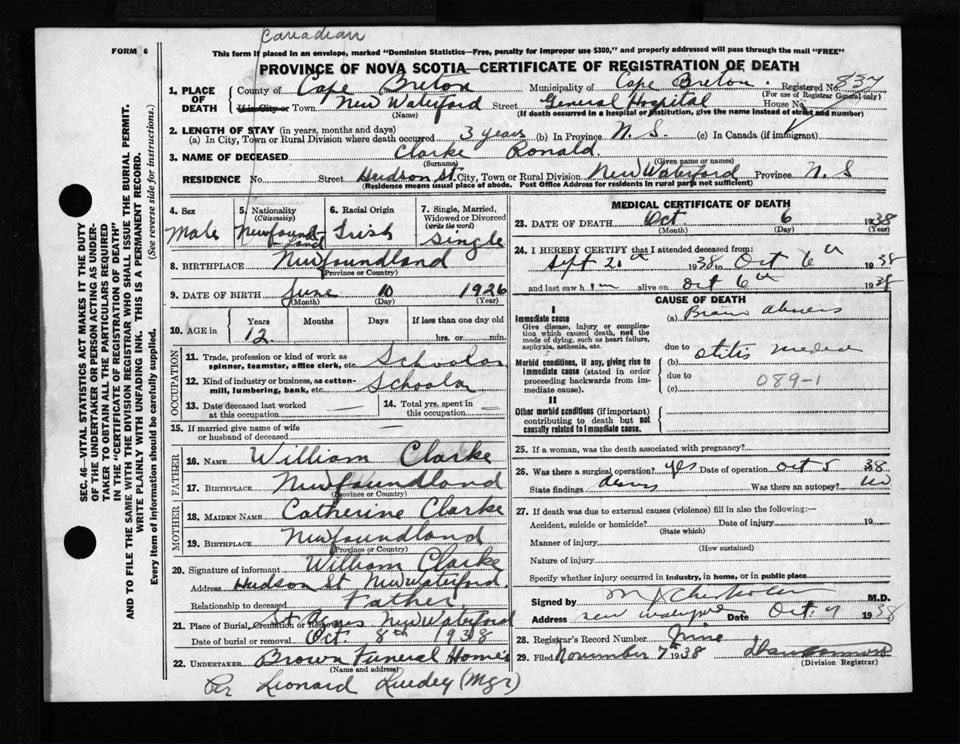 Canadian
FORM 6
This form if placed in an envelope, marked "Dominion Statistics—Free, penalty for improper use $300," and properly addressed will pass through the mail "FREE"
PROVINCE OF NOVA SCOTIA—CERTIFICATE OF REGISTRATION OF DEATH
1. PLACE OF DEATH
County of Cape Breton Municipality of Cape Breton Registered No. 837
(For use of Registrar General only)
If in City or Town New Waterford Street General Hospital House No.
(Name) (If death occurred in a hospital or institution, give the name instead of street and number)
2. LENGTH OF STAY (in years, months and days)
(a) In City, Town or Rural Division where death occurred 3 years (b) In Province N. S. (c) In Canada (if immigrant)
3. NAME OF DECEASED Clarke Ronald
(Surname) (Given name or names)
RESIDENCE No. Street Hudson St. City, Town or Rural Division New Waterford Province N. S
(Residence means usual place of abode. Post Office Address for residents in rural parts not sufficient)
4. Sex
Male
5. Nationality (Citizenship)
Newfoundland
6. Racial Origin
Irish
7. Single, Married, Widowed or Divorced (write the word)
Single
8. BIRTHPLACE Newfoundland
(Province or Country)
9. DATE OF BIRTH June 10 1926
(Month) (Day) (Year)
10. AGE in
Years Months Days If less than one day old
12 hrs. or min.
OCCUPATION
11. Trade, profession or kind of work as spinner, teamster, office clerk, etc. Schoolar
12. Kind of industry or business, as cotton-mill, lumbering, bank, etc. Schoolar
13. Date deceased last worked at this occupation
14. Total yrs. spent in this occupation
15. If married give name of wife or husband of deceased
FATHER
16. NAME William Clarke
17. BIRTHPLACE Newfoundland
(Province or Country)
MOTHER
18. MAIDEN NAME Catherine Clarke
19. BIRTHPLACE Newfoundland
(Province or Country)
20. Signature of informant William Clarke
Address Hudson St New Waterford
Relationship to deceased Father
21. Place of Burial, Cremation or Removal St Agnes New Waterford
Date of burial or removal Oct. 8th 1938
22. UNDERTAKER Brown Funeral Home
(Name and address)
Per Leonard (Mgr)
MEDICAL CERTIFICATE OF DEATH
23. DATE OF DEATH Oct 6 1938
(Month) (Day) (Year)
24. I HEREBY CERTIFY that I attended deceased from:
Sept 20th 1938 to Oct 6th 1938
and last saw him alive on Oct 6th 1938
CAUSE OF DEATH
I
Immediate cause
Give disease, injury or complication which caused death, not the mode of dying, such as heart failure, asphyxia, asthenia, etc.
(a) Brain abscess
due to
Morbid conditions, if any, giving rise to immediate cause (stated in order proceeding backwards from immediate cause).
(b) otitis media
due to
(c) 089-1
II
Other morbid conditions (if important) contributing to death but not causally related to immediate cause.
25. If a woman, was the death associated with pregnancy?
26. Was there a surgical operation? yes Date of operation Oct 5 38
State findings Was there an autopsy? no
27. If death was due to external causes (violence) fill in also the following:—
Accident, suicide or homicide? Date of injury 19
(State which)
Manner of injury
(How sustained)
Nature of injury
Specify whether injury occurred in industry, in home, or in public place
Signed by M.D.
Address New Waterford Date Oct. 1938
28. Registrar's Record Number Nine
29. Filed November 7th 1938
(Division Registrar)
SEC. 46—VITAL STATISTICS ACT MAKES IT THE DUTY
OF THE UNDERTAKER OR PERSON ACTING AS UNDER-
TAKER TO OBTAIN ALL THE PARTICULARS REQUIRED
IN THE "CERTIFICATE OF REGISTRATION OF DEATH"
AND TO FILE THE SAME WITH THE DIVISION REGISTRAR WHO SHALL ISSUE THE BURIAL PERMIT.
WRITE PLAINLY WITH UNFADING INK. THIS IS A PERMANENT RECORD.
Every item of information should be carefully supplied. (See reverse side for instructions.)